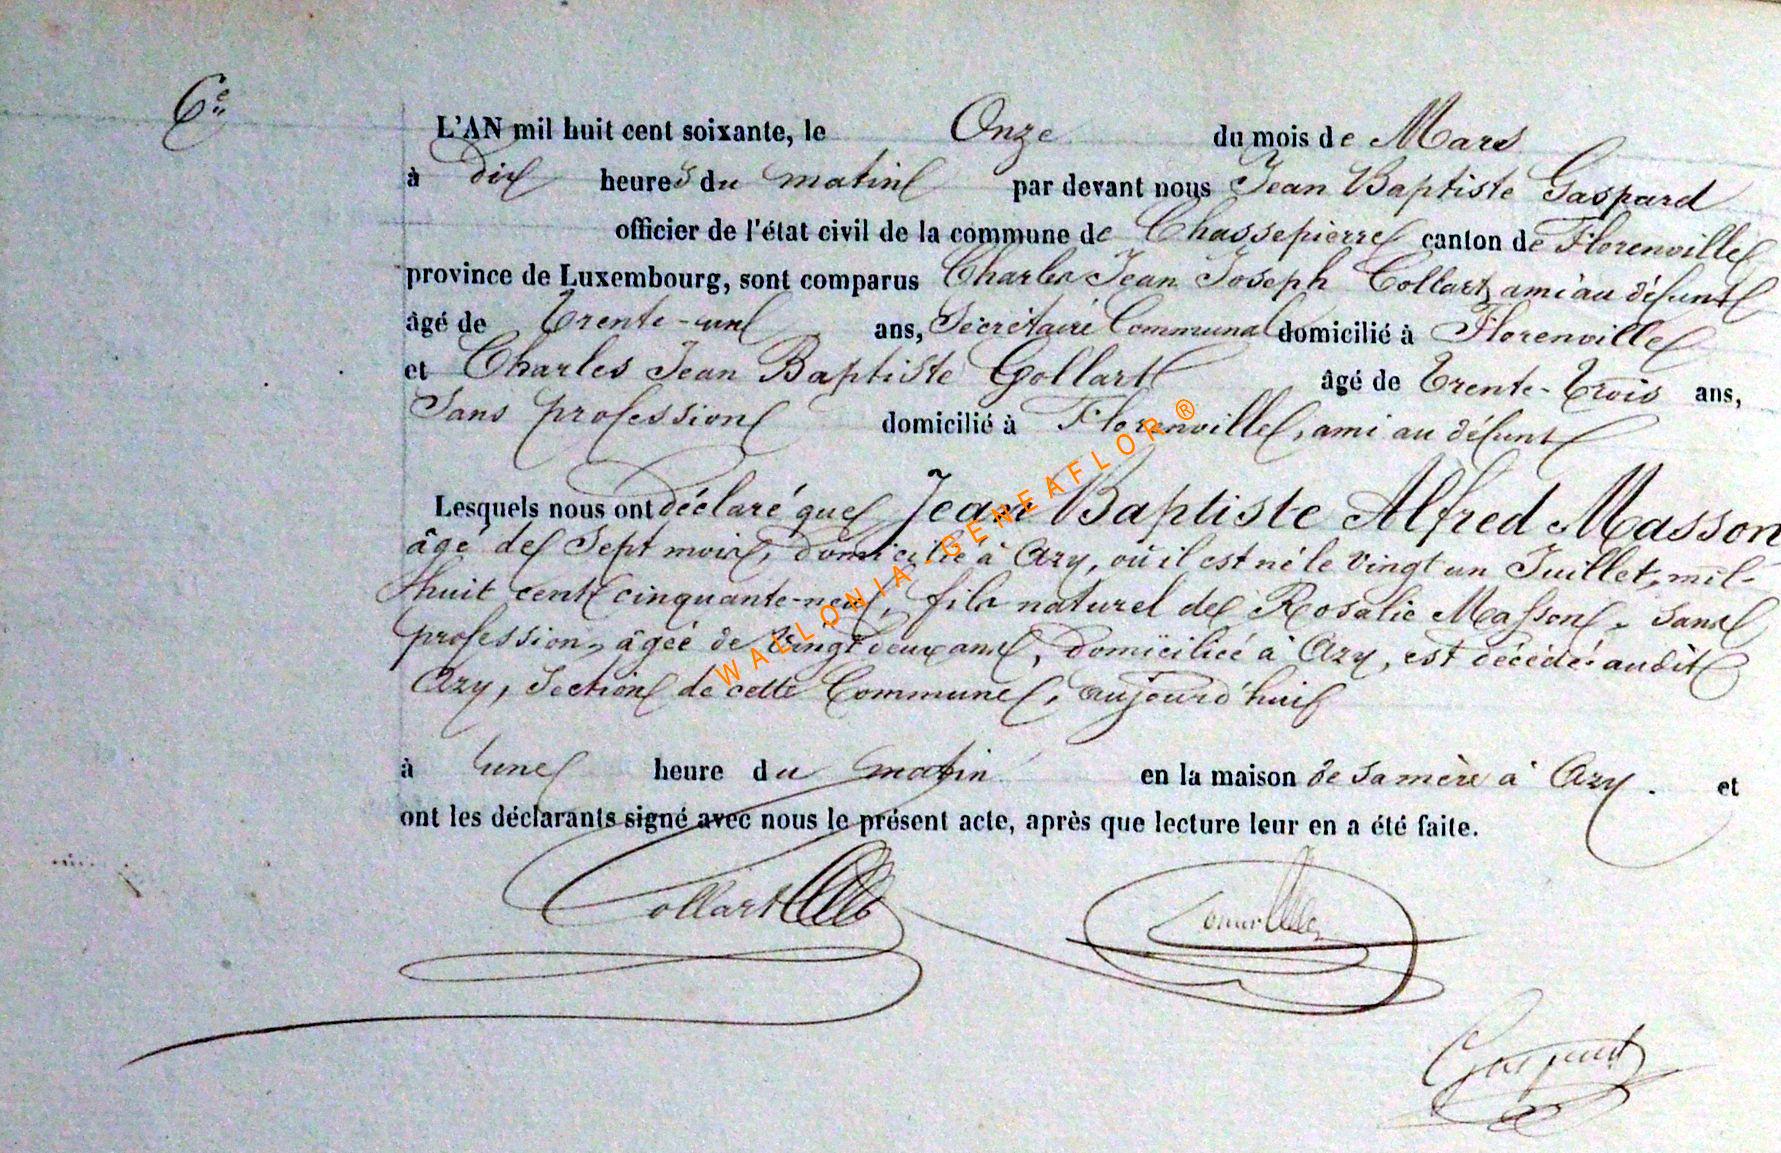 6e
L'AN mil huit cent soixante, le Onze du mois de Mars
à dix heures du matin par devant nous Jean Baptiste Gaspard
officier de l'état civil de la commune de Chassepierre canton de Florenville
province de Luxembourg, sont comparus Charles Jean Joseph Collart, ami au défunt
âgé de Trente-un ans, Sécrétaire Communal domicilié à Florenville
et Charles Jean Baptiste Gollart âgé de Trente-Trois ans,
Sans profession domicilié à Florenville, ami au défunt
Lesquels nous ont déclaré que Jean Baptiste Alfred Masson
âgé de Sept mois, domicilié à Azy, où il est né le Vingt un Juillet, mil-
huit cent cinquante-neuf, fils naturel de Rosalie Masson, Sans
profession, âgée de Vingt deux ans, domiciliée à Azy, est décédé audit
Azy, Section de cette Commune, aujourd'hui
à une heure du matin en la maison de sa mère à Azy. et
ont les déclarants signé avec nous le présent acte, après que lecture leur en a été faite.
Collart
Gaspard
WALLONIA-GENEAFLOR®